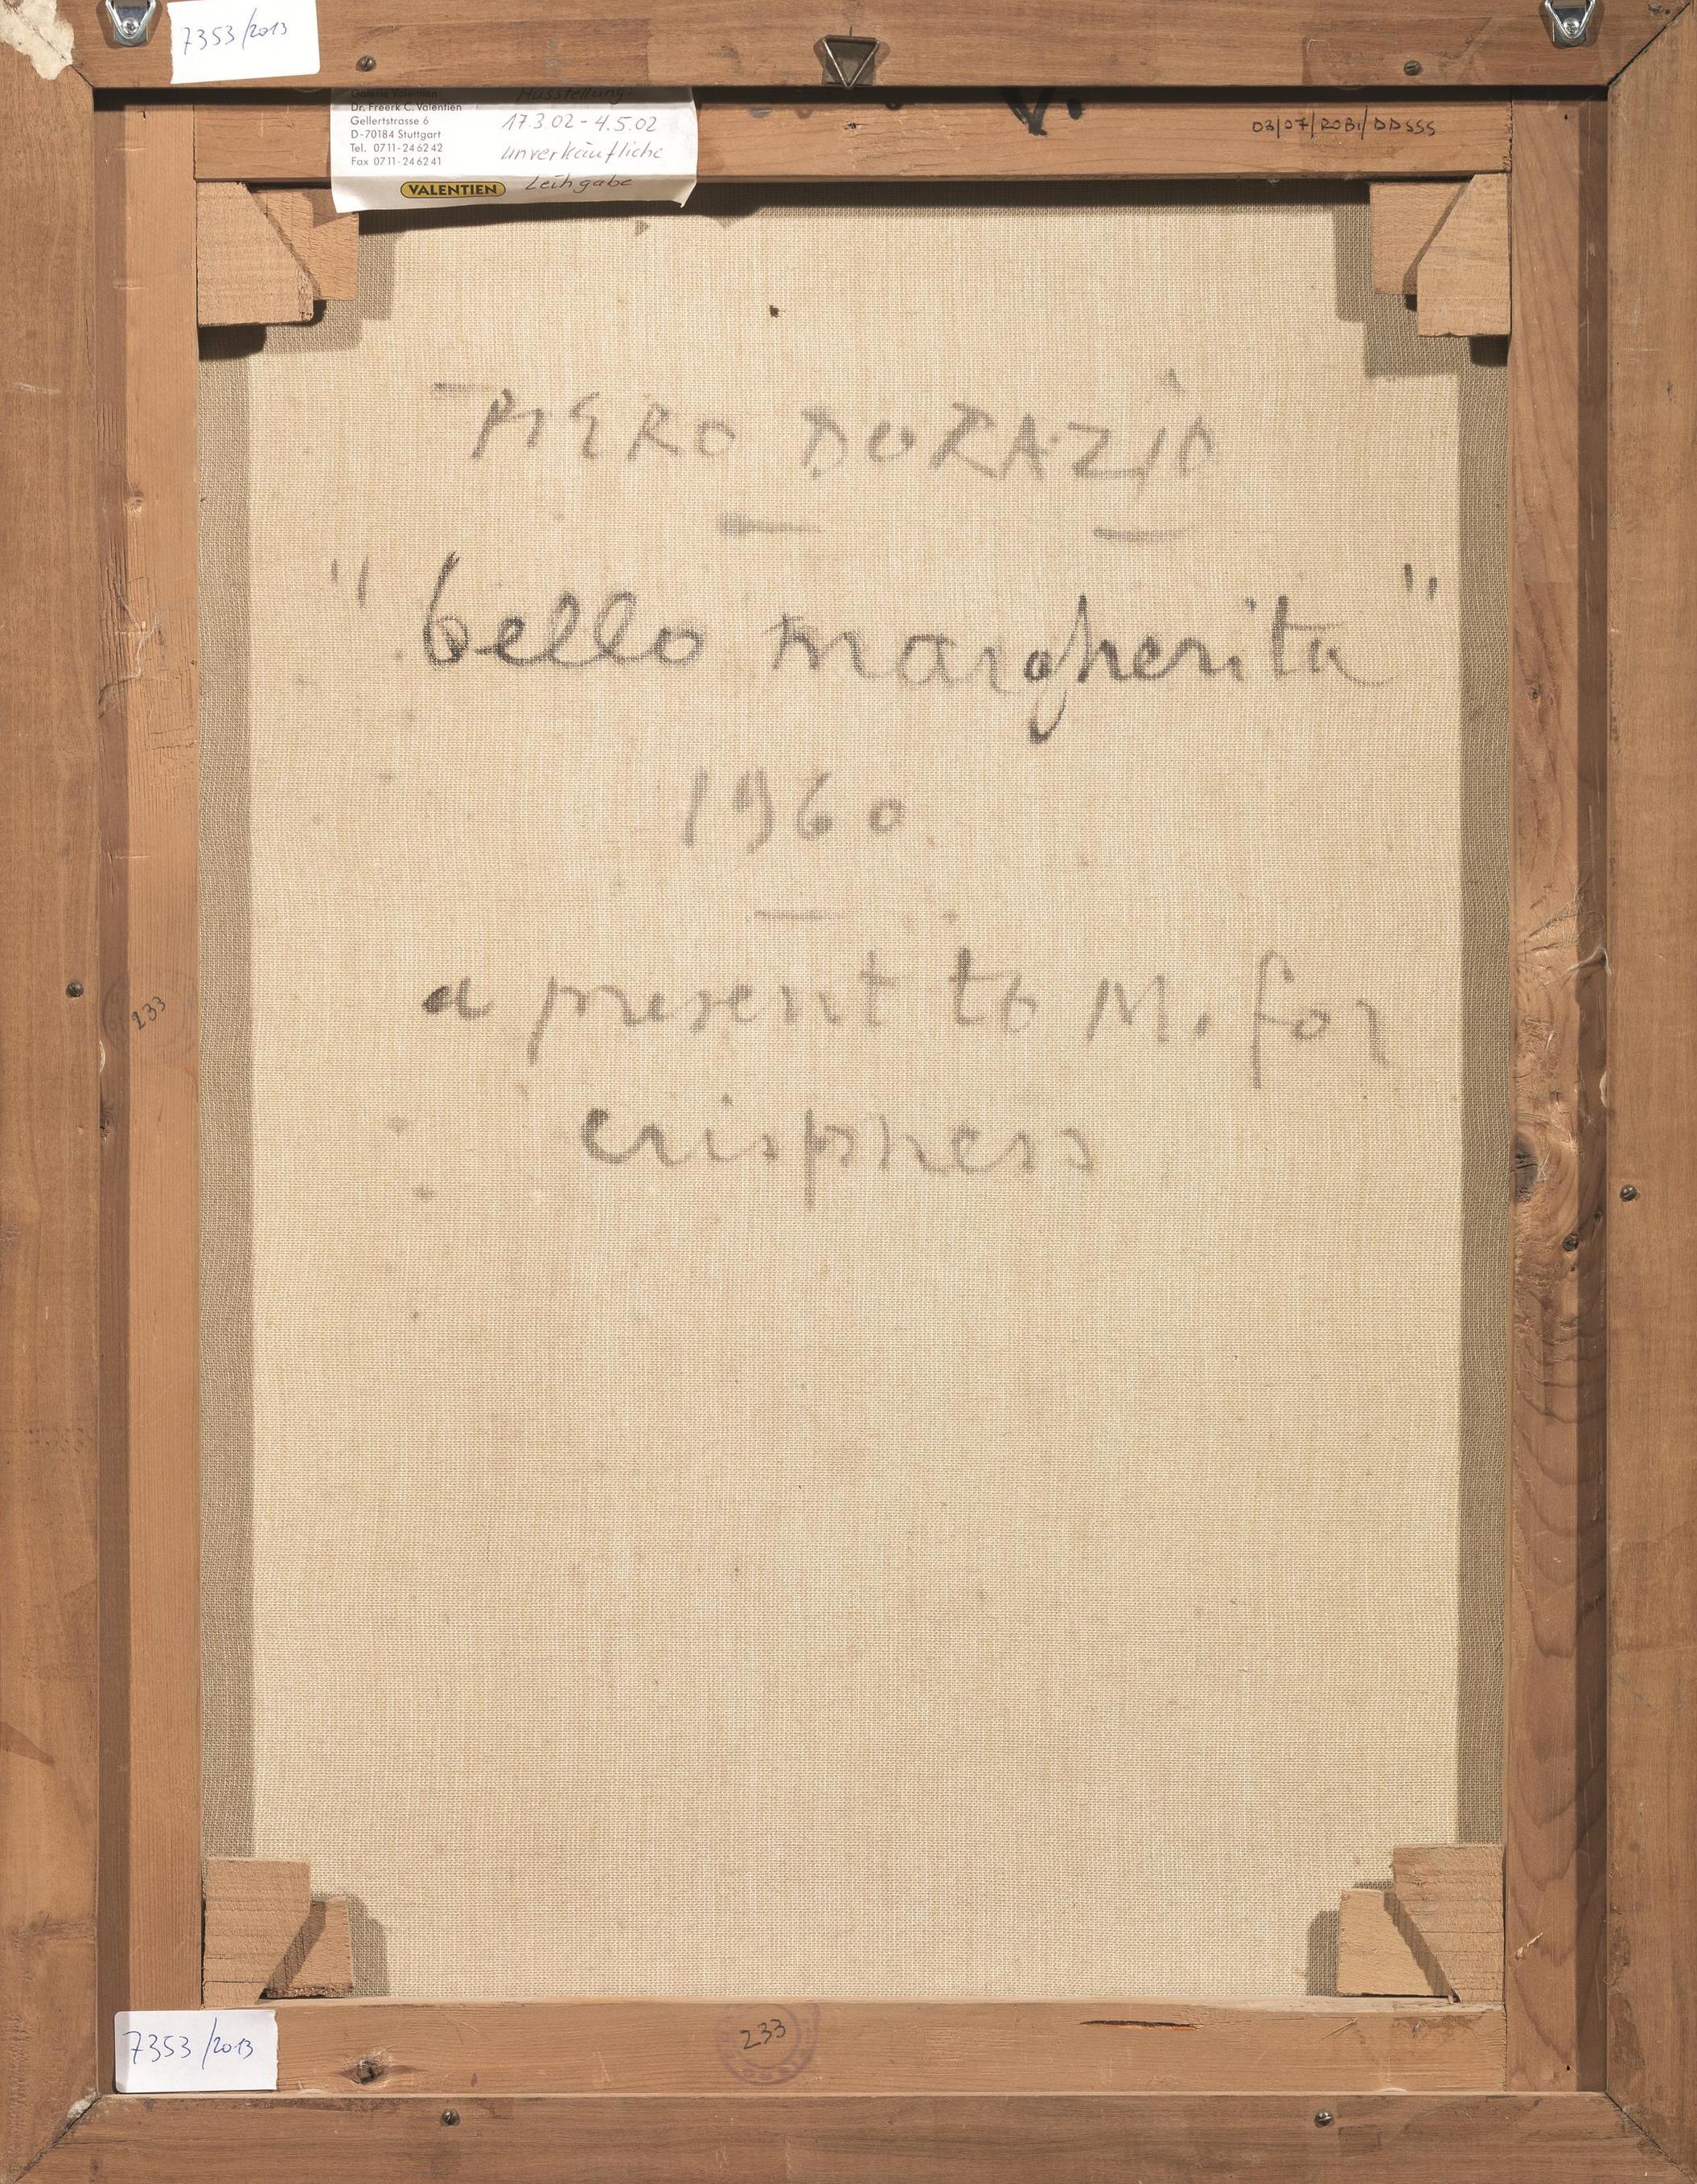 7353/2013
Galerie Valentien
Dr. Freerk C. Valentien
Gellertstrasse 6
D-70184 Stuttgart
Tel. 0711-246242
Fax 0711-246241
VALENTIEN
Ausstellung:
17.3.02 - 4.5.02
unverkäufliche
Leihgabe
V.
03/07/ROBI/DDSSS
PIERO DORAZIO
"bello margherita"
1960
a present to M. for
crispness
233
7353/2013
233